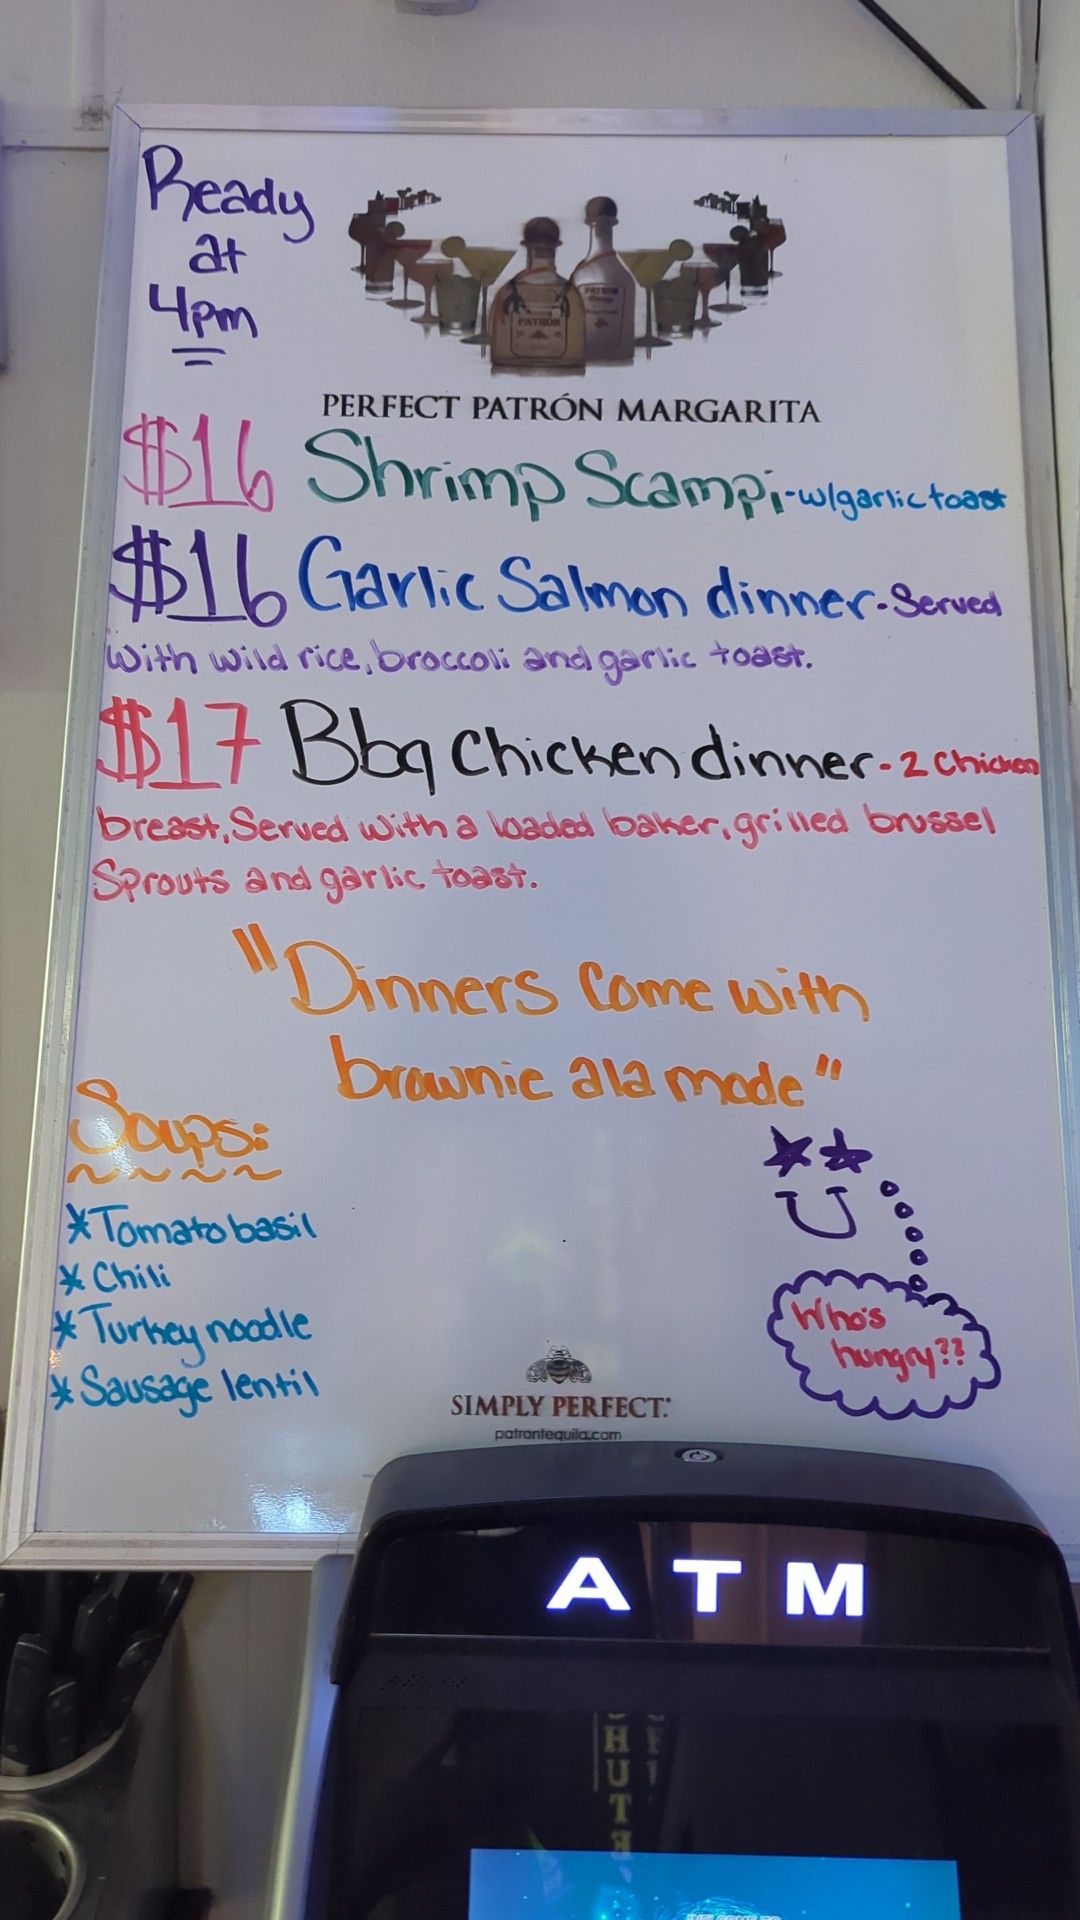 Ready
at
4pm
PATRÓN
PATRÓN
PERFECT PATRÓN MARGARITA
$16 Shrimp Scampi-w/garlic toast
$16 Garlic Salmon dinner-Served
with wild rice, broccoli and garlic toast.
$17 Bbq Chicken dinner-2 Chicken
breast, Served with a loaded baker, grilled brussel
Sprouts and garlic toast.
"Dinners Come with
brownie ala mode"
Soups:
*Tomato basil
*Chili
*Turkey noodle
*Sausage lentil
Who's
hungry??
SIMPLY PERFECT.
patrontequila.com
ATM
WELCOME TO